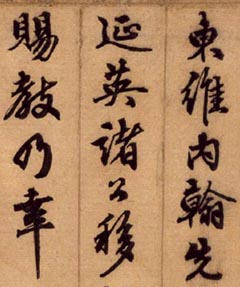 東維内翰先
延英諸公移
賜教乃幸